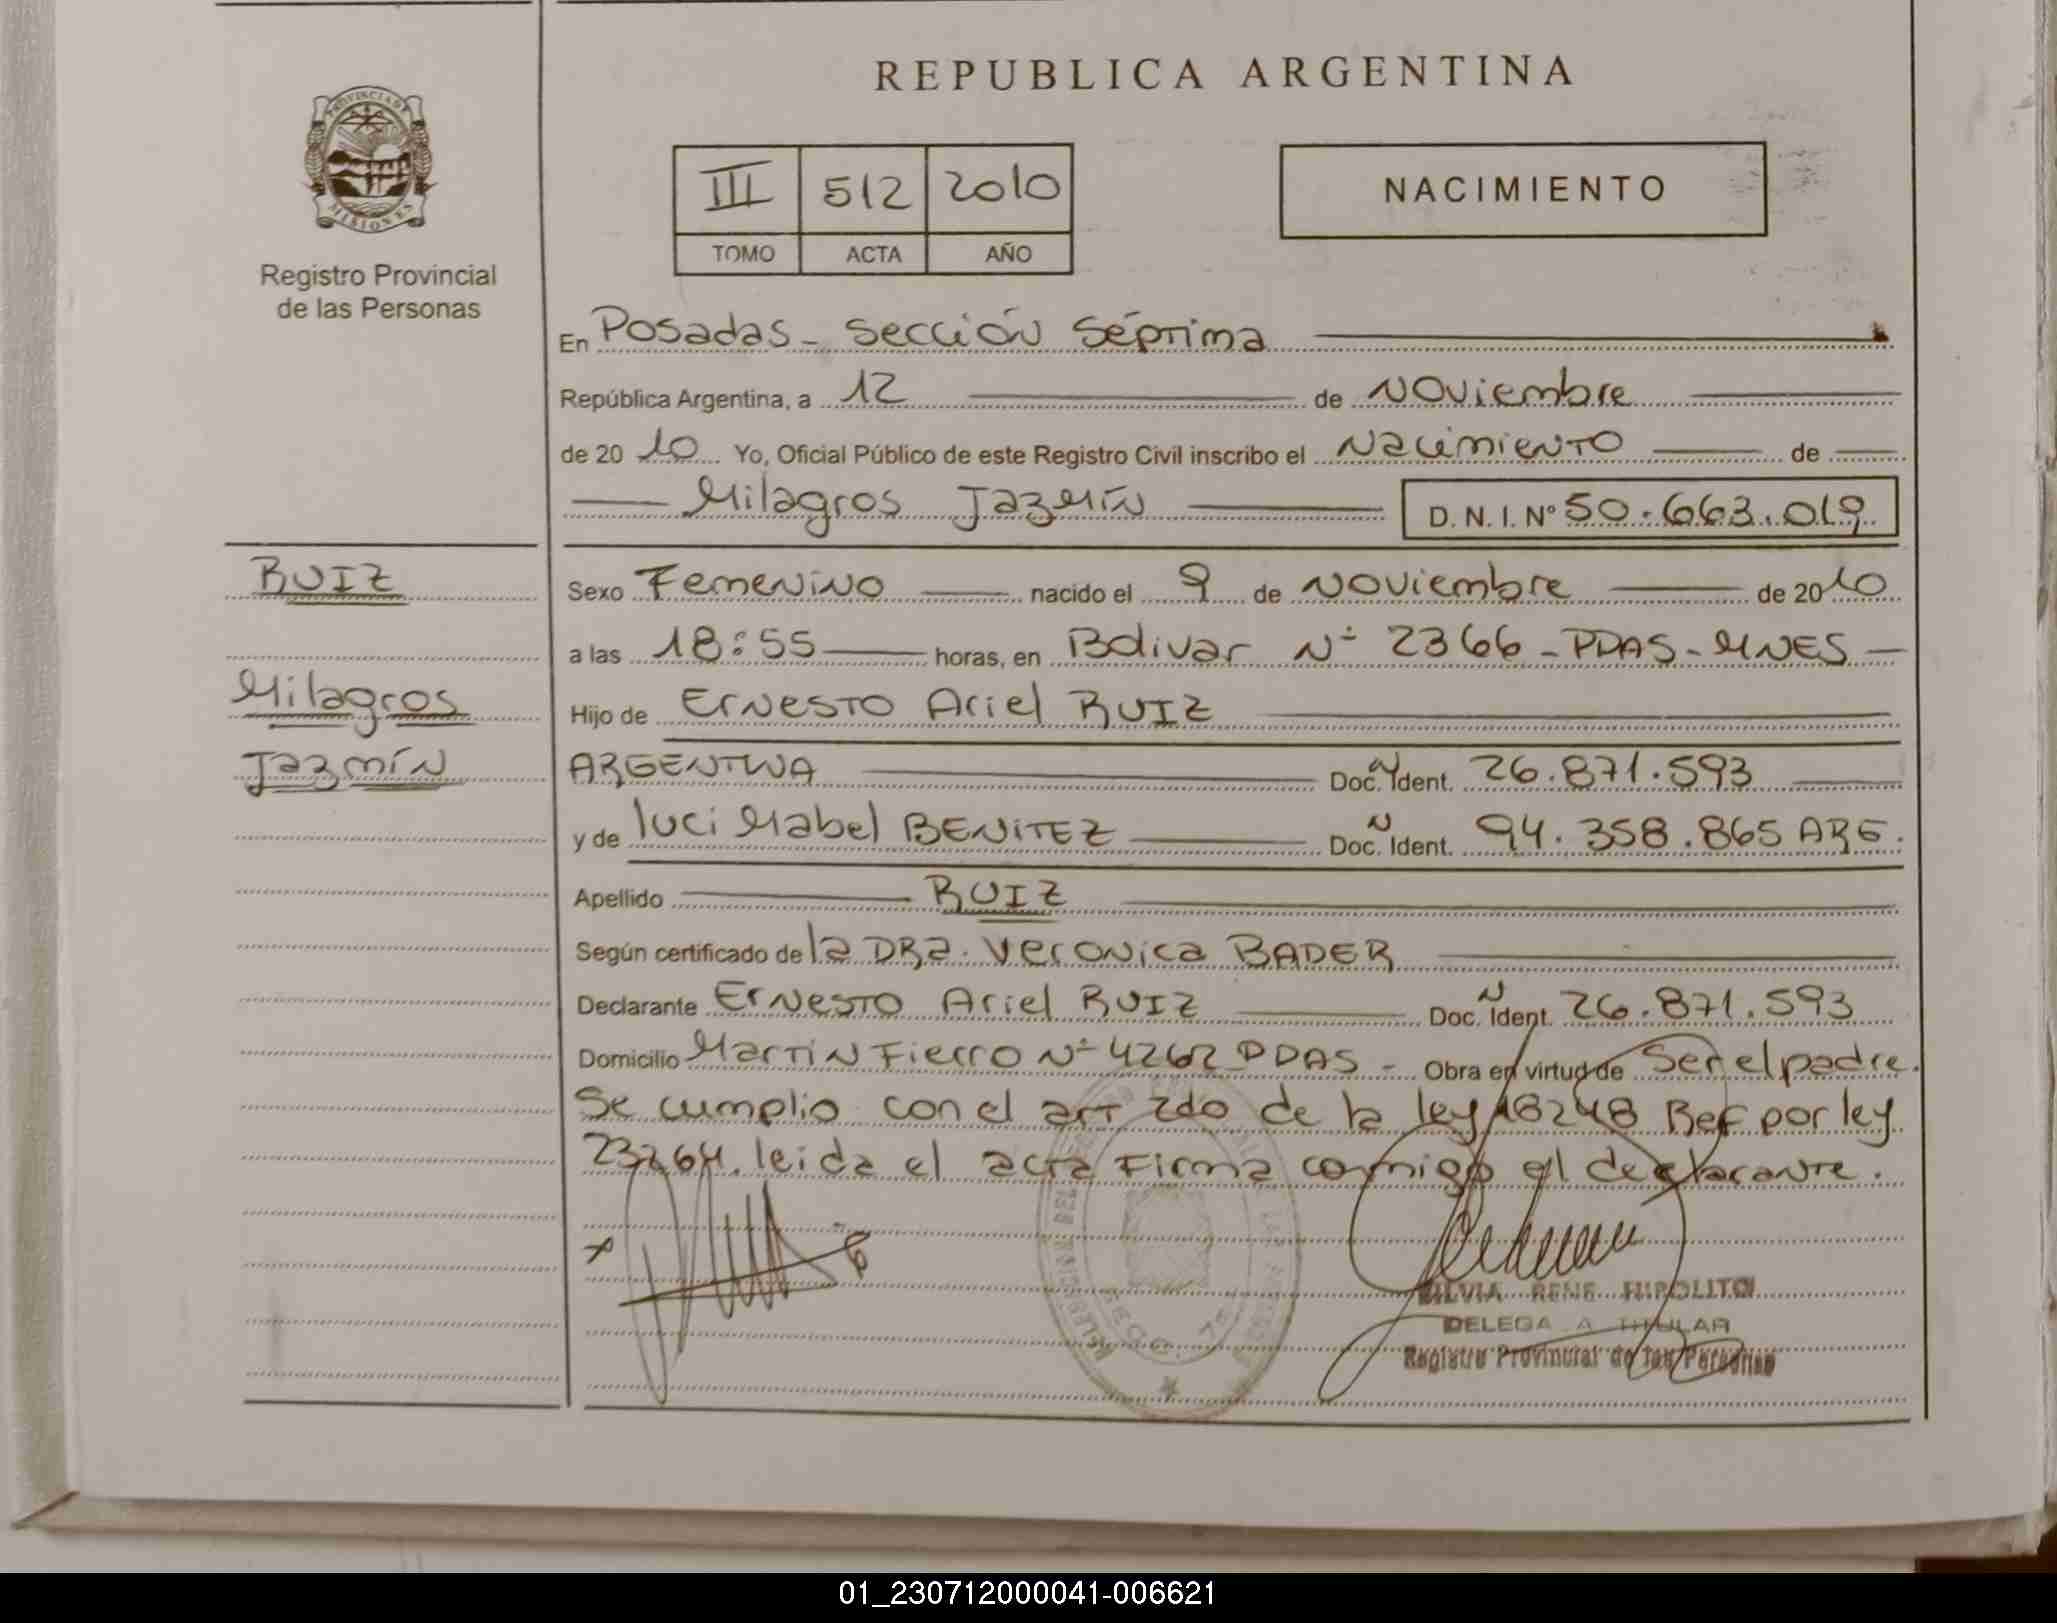 REPUBLICA ARGENTINA
PROVINCIA DE
MISIONES
Registro Provincial
de las Personas
III 512 2010
TOMO ACTA AÑO
NACIMIENTO
En Posadas - Sección Séptima
República Argentina, a 12 de Noviembre
de 2010 Yo, Oficial Público de este Registro Civil inscribo el Nacimiento de
Milagros Jazmín D. N. I. Nº 50.663.019
RUIZ
Milagros
Jazmín
Sexo Femenino nacido el 9 de Noviembre de 2010
a las 18:55 horas, en Bolivar Nº 2366 - PDAS - MNES
Hijo de Ernesto Ariel RUIZ
ARGENTINA Doc. Ident. 26.871.593
y de luci Mabel BENITEZ Doc. Ident. 94.358.865 ARG.
Apellido RUIZ
Según certificado de la DRa. Veronica BADER
Declarante Ernesto Ariel RUIZ Doc. Ident. 26.871.593
Domicilio Martin Fierro Nº 4262 PDAS - Obra en virtud de Ser el padre.
Se cumplio con el art 2do de la ley 18248 Ref por ley
23264. leida el acta Firma conmigo el declarante.
SILVIA RENE HIPOLITO
DELEGADA TITULAR
Registro Provincial de las Personas
01_230712000041-006621